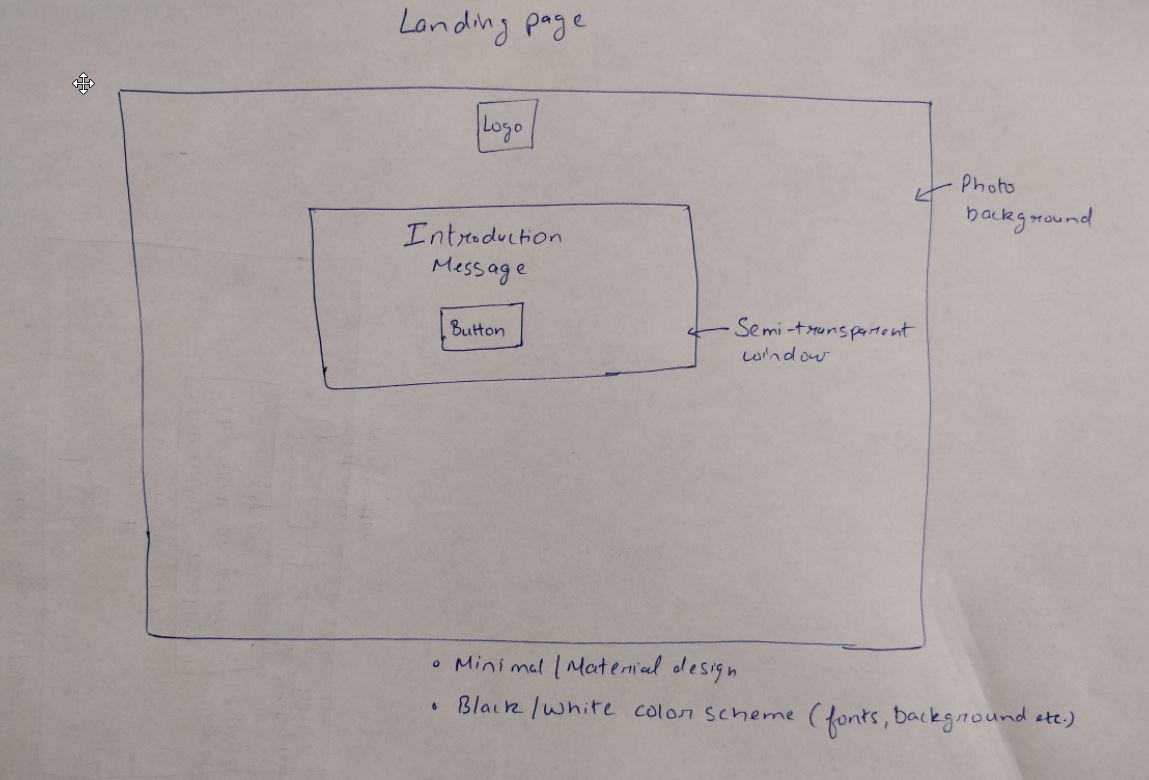 Landing page
Logo
Photo
background
Introduction
Message
Button
Semi-transparent
window
• Minimal / Material design
• Black / white color scheme (fonts, background etc.)